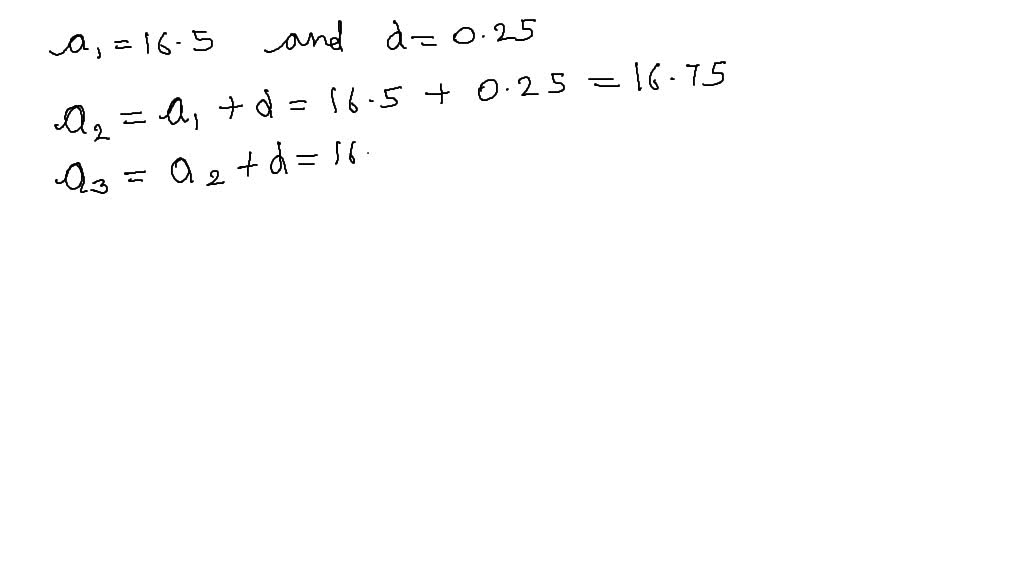 a₁ = 16.5 and d = 0.25
a₂ = a₁ + d = 16.5 + 0.25 = 16.75
a₃ = a₂ + d = 16.